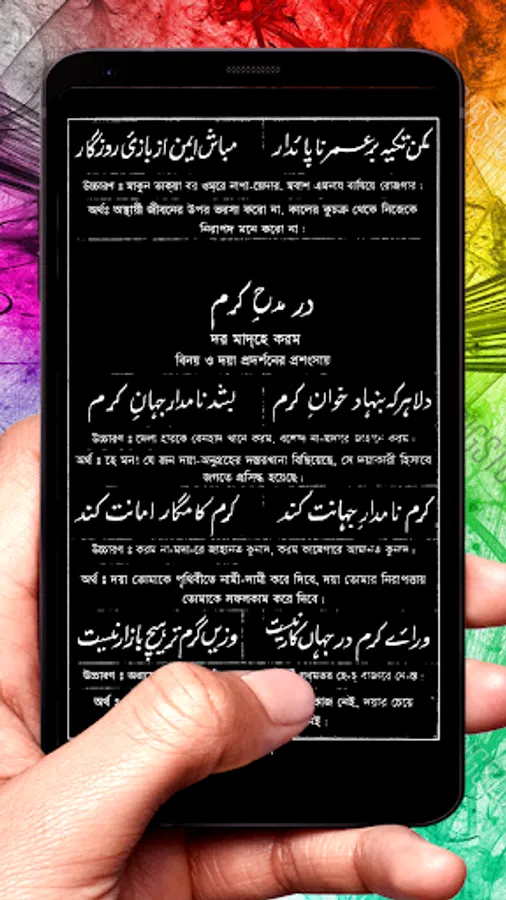 مکن تکیه بر عمر ناپائدار مباش ایمن از بازئ روزگار
উচ্চারণ : মাকুন তাক্‌য়া বর ওমরে নাপা-য়েদার, মবাশ এমনয বাযিয়ে রোজগার।
অর্থঃ অস্থায়ী জীবনের উপর ভরসা করো না, কালের কুচক্র থেকে নিজেকে
নিরাপদ মনে করো না।
در مدحِ کرم
দর মাদ্‌হে করম
বিনয় ও দয়া প্রদর্শনের প্রশংসায়
دلا ہر کہ بنہاد خوانِ کرم بشد نامدار جہانِ کرم
উচ্চারণ : দেলা হারকে বেনহাদ খানে করম, না-মদারে জাহানে করম।
অর্থ : হে মন! যে জন দয়া-অনুগ্রহের দস্তরখানা বিছিয়েছে, সে দয়াকারী হিসাবে
জগতে প্রসিদ্ধ হয়েছে।
کرم نامدارِ جہانت کند کرم کامگار امانت کند
উচ্চারণ : করম না-মদারে জাহানত কুনাদ, করম কামেগারে আমানত কুনাদ।
অর্থ : দয়া তোমাকে পৃথিবীতে নামী-দামী করে দিবে, দয়া তোমার নিরাপত্তায়
তোমাকে সফলকাম করে দিবে।
ورائے کرم در جہاں کار نیست وزیں گرم تر ہیچ بازار نیست
উচ্চারণ : বাজারে
অর্থ : কাজ নেই, দয়ার চেয়ে